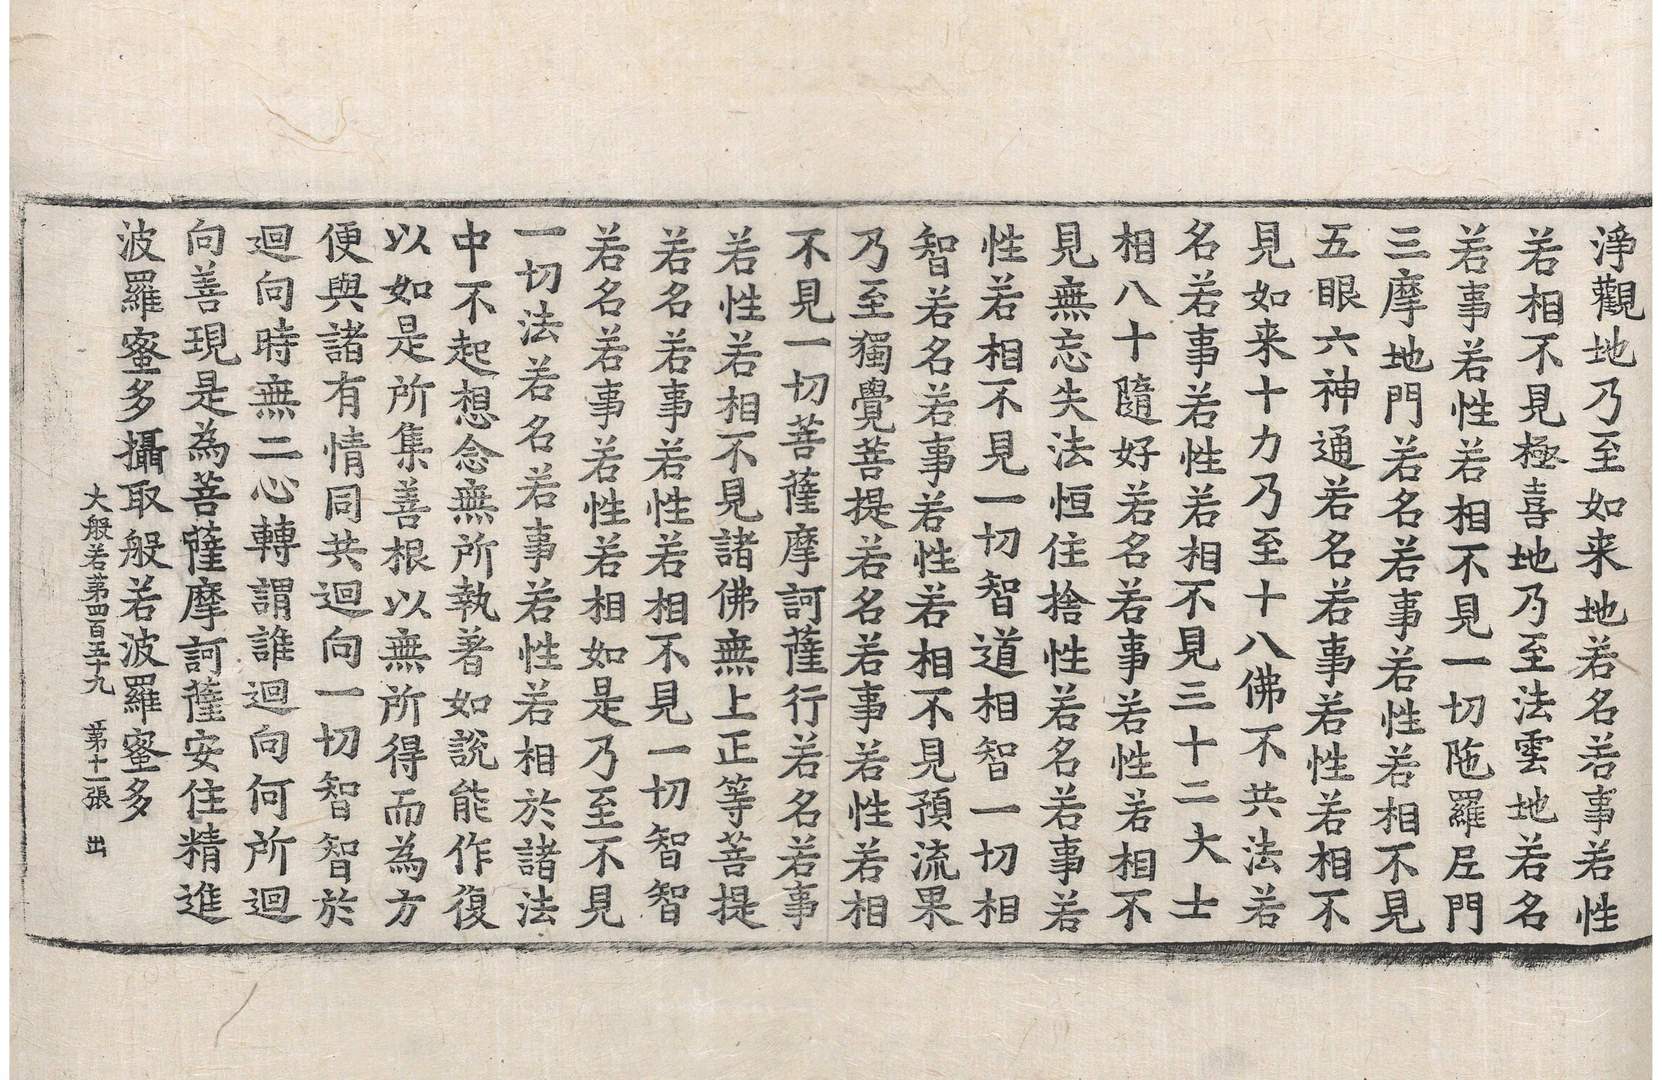 淨觀地乃至如来地若名若事若性
若相不見極喜地乃至法雲地若名
若事若性若相不見一切陁羅尼門
三摩地門若名若事若性若相不見
五眼六神通若名若事若性若相不
見如来十力乃至十八佛不共法若
名若事若性若相不見三十二大士
相八十隨好若名若事若性若相不
見無忘失法恒住捨性若名若事若
性若相不見一切智道相智一切相
智若名若事若性若相不見預流果
乃至獨覺菩提若名若事若性若相
不見一切菩薩摩訶薩行若名若事
若性若相不見諸佛無上正等菩提
若名若事若性若相不見一切智智
若名若事若性若相如是乃至不見
一切法若名若事若性若相於諸法
中不起想念無所執著如說能作復
以如是所集善根以無所得而為方
便與諸有情同共迴向一切智智於
迴向時無二心轉謂誰迴向何所迴
向善現是為菩薩摩訶薩安住精進
波羅蜜多攝取般若波羅蜜多
大般若第四百五十九 第十一張 出